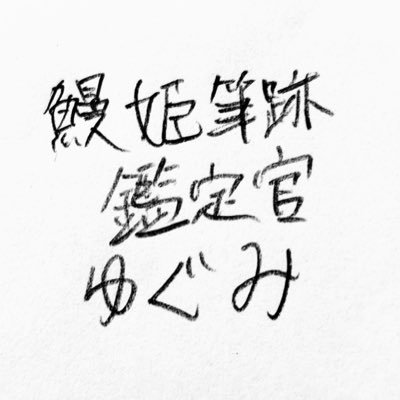 鰻姫筆跡
鑑定官
ゆぐみ